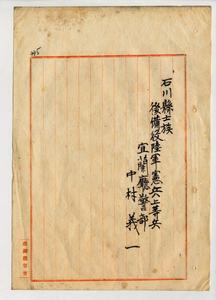 石川縣士族
後備役陸軍憲兵上等兵
宜蘭廳警部
中村義一